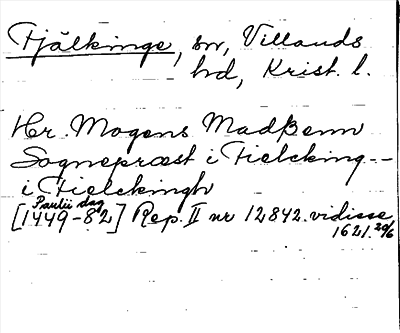 Fjälkinge, sn, Villands
hd, Krist. l.
Hr. Mogens Madßenn
Sognepræst i Fielcking--
i Fielckingh
Paulii dag
[1449-82] Rep. II nr 12842. vidisse
1621. 29/6